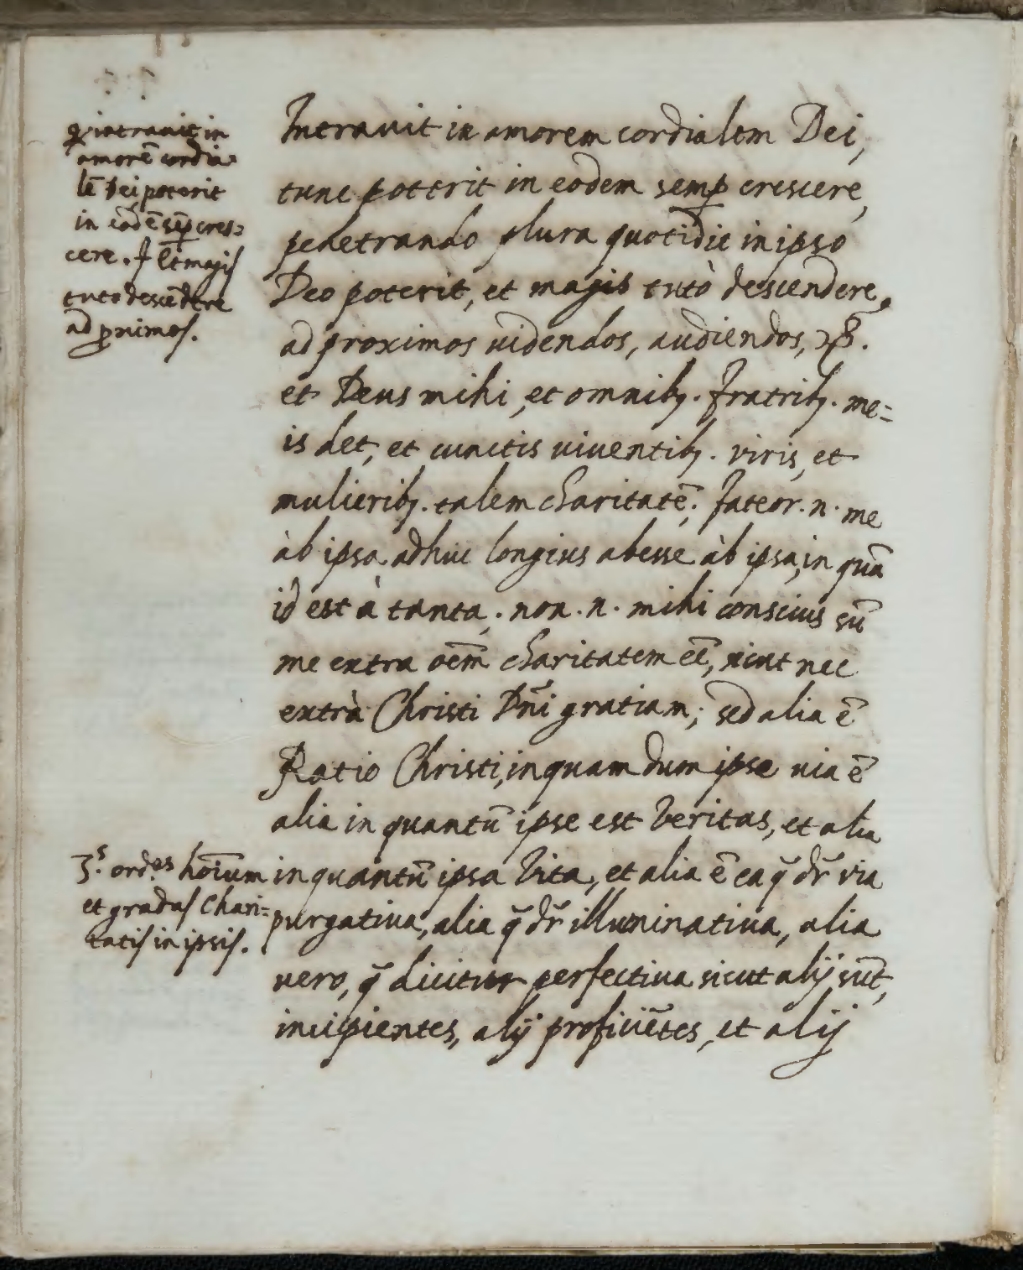 Intrauit in amorem cordialem Dei,
tunc poterit in eodem semp̱ crescere,
penetrando plura quotidie in ipso
Deo poterit, et magis tutò descendere,
ad proximos uidendos, audiendos, &c.
et Deus mihi, et omnibꝫ. fratribꝫ. me=
is det, et cunctis uiuentibꝫ. viris, et
mulieribꝫ. talem charitatē. fateor. n. me
àb ipsa adhuc longius abesse àb ipsa, in quā
id est à tanta. non. n. mihi conscius sū
me extra oēm charitatem eē, sicut nec
extrà Christi Dn̄i gratiam; sed alia ē
Ratio Christi, inquam dum ipse uia ē
alia in quantū ipse est Veritas, et alia
inquantū ipsa Vita, et alia ē ea q̄ dr̄ via
purgatiua, alia q̄ dr̄ illuminatiua, alia
uero, q̄ dicitur perfectiua sicut alij sūt,
incipientes, alij proficiētes, et alij
q̱ intrauit in
amorē cordia=
lē Dei, poterit
in eodē sēp̱ cres=
cere. Et magis
tuto descēdere
ad ꝓximos.
3.s ord.es hoīum
et gradus Chari=
tatis in ipsis.